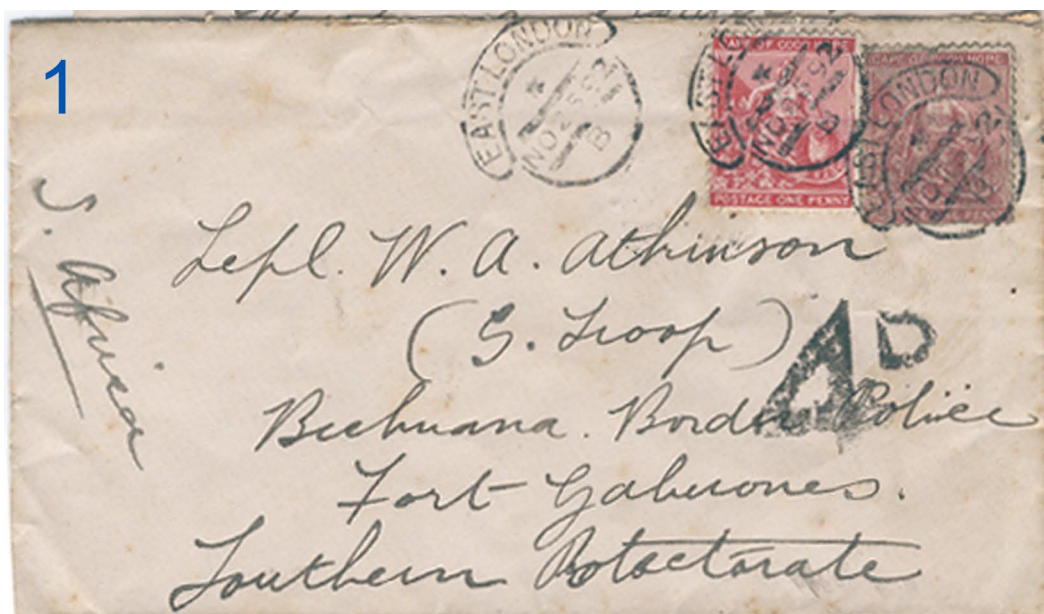 1
EAST LONDON
NO 25 92
B
CAPE OF GOOD HOPE
POSTAGE ONE PENNY
EAST LONDON
NO 25 92
B
CAPE OF GOOD HOPE
EAST LONDON
S. Africa
Lepl. W. A. Atkinson
(G. Troop)
Bechuana. Border Police
Fort Gaberones.
Southern Protectorate
1D